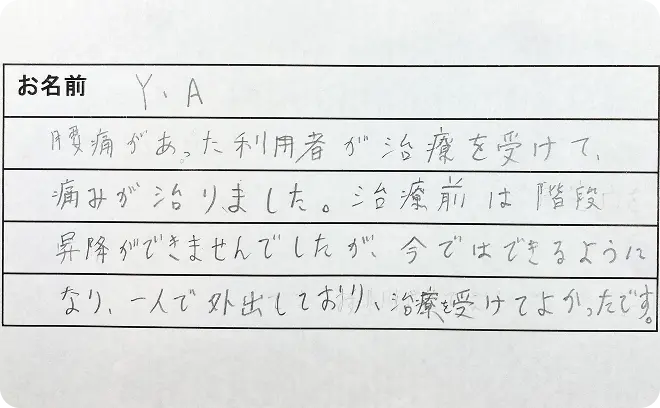 お名前 Y、A
腰痛があった利用者が治療を受けて、
痛みが治りました。治療前は階段
昇降ができませんでしたが、今ではできるように
なり、一人で外出しており、治療を受けてよかったです。